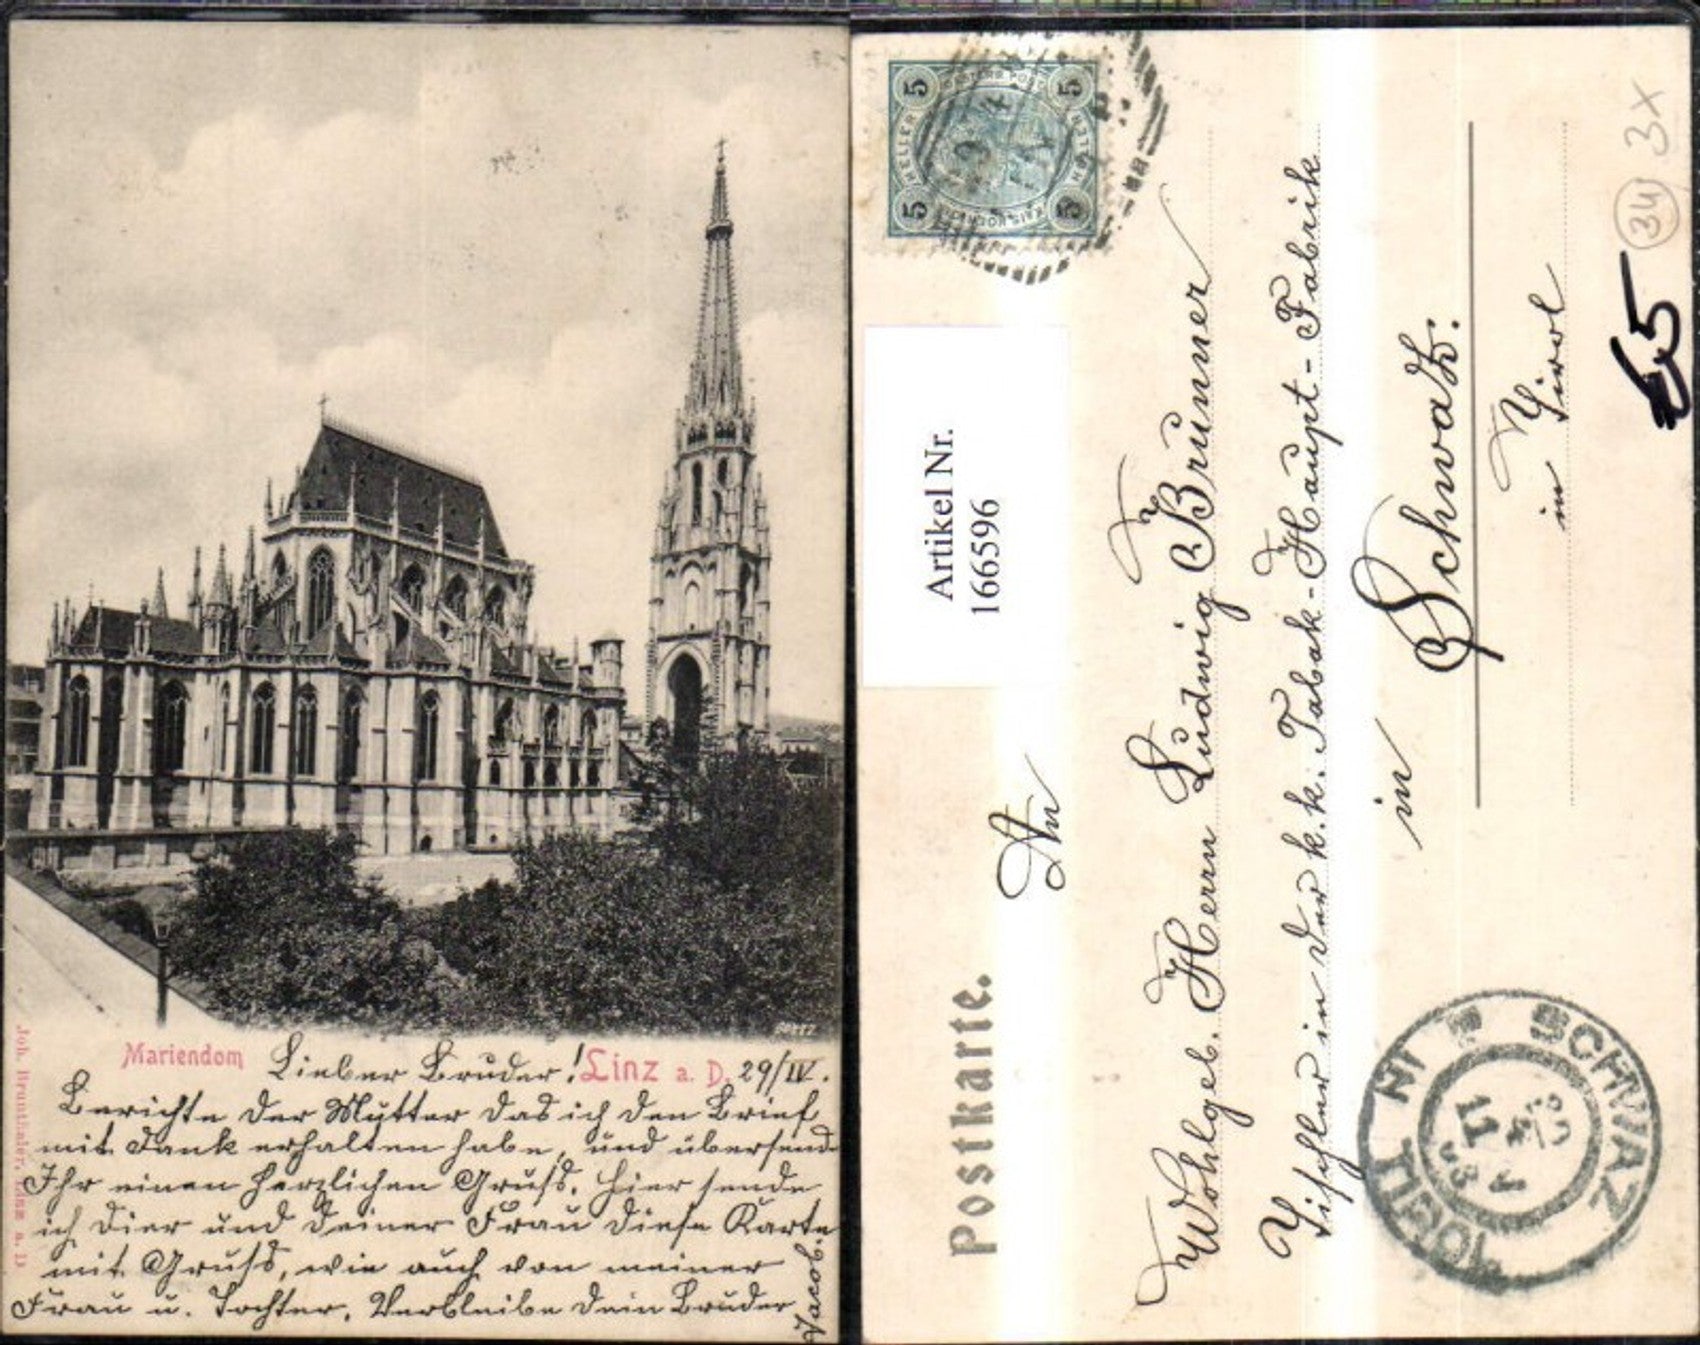 Mariendom
Lieber Bruder!
Linz a. D. 29/IV.
Berichte der Mutter das ich den Brief
mit Dank erhalten habe, und übersende
Ihr einen herzlichen Gruß. Hier sende
ich Dier und Deiner Frau diese Karte
mit Gruß, wie auch von meiner
Frau u. Tochter. Verbleibe Dein Bruder
Jacob.
Joh. Brunthaler, Linz a. D
Postkarte.
An
Wohlgeb. Herrn Ludwig Brunner
Tischler in der k. k. Tabak-Haupt-Fabrik
in Schwatz.
in Tirol
Artikel Nr.
166596
5 5 5 5
HELLER HELLER
SCHWAZ
IN TIROL
30
4
11
03
34
3x
€5